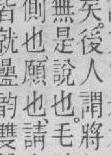 矣後人謂將
無是說也毛
側也願也請
皆就壘韵雙